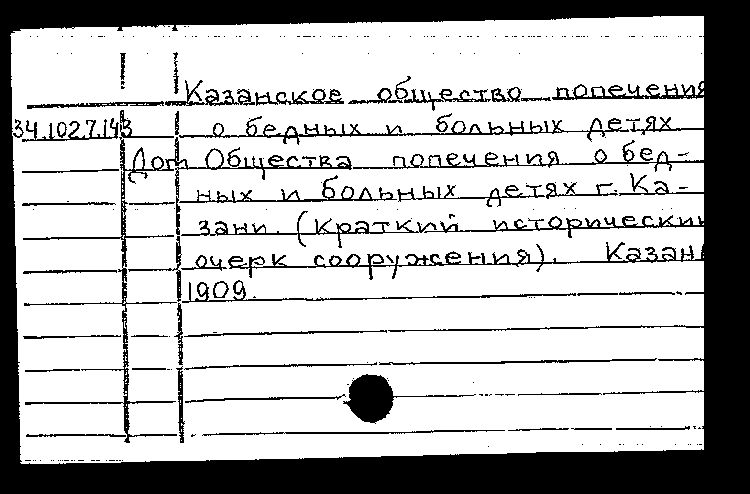 Казанское общество попечения
34.1027.143 о бедных и больных детях
Дом Общества попечения о бед-
ных и больных детях г. Ка-
зани. (Краткий исторический
очерк сооружения). Казань
1909.